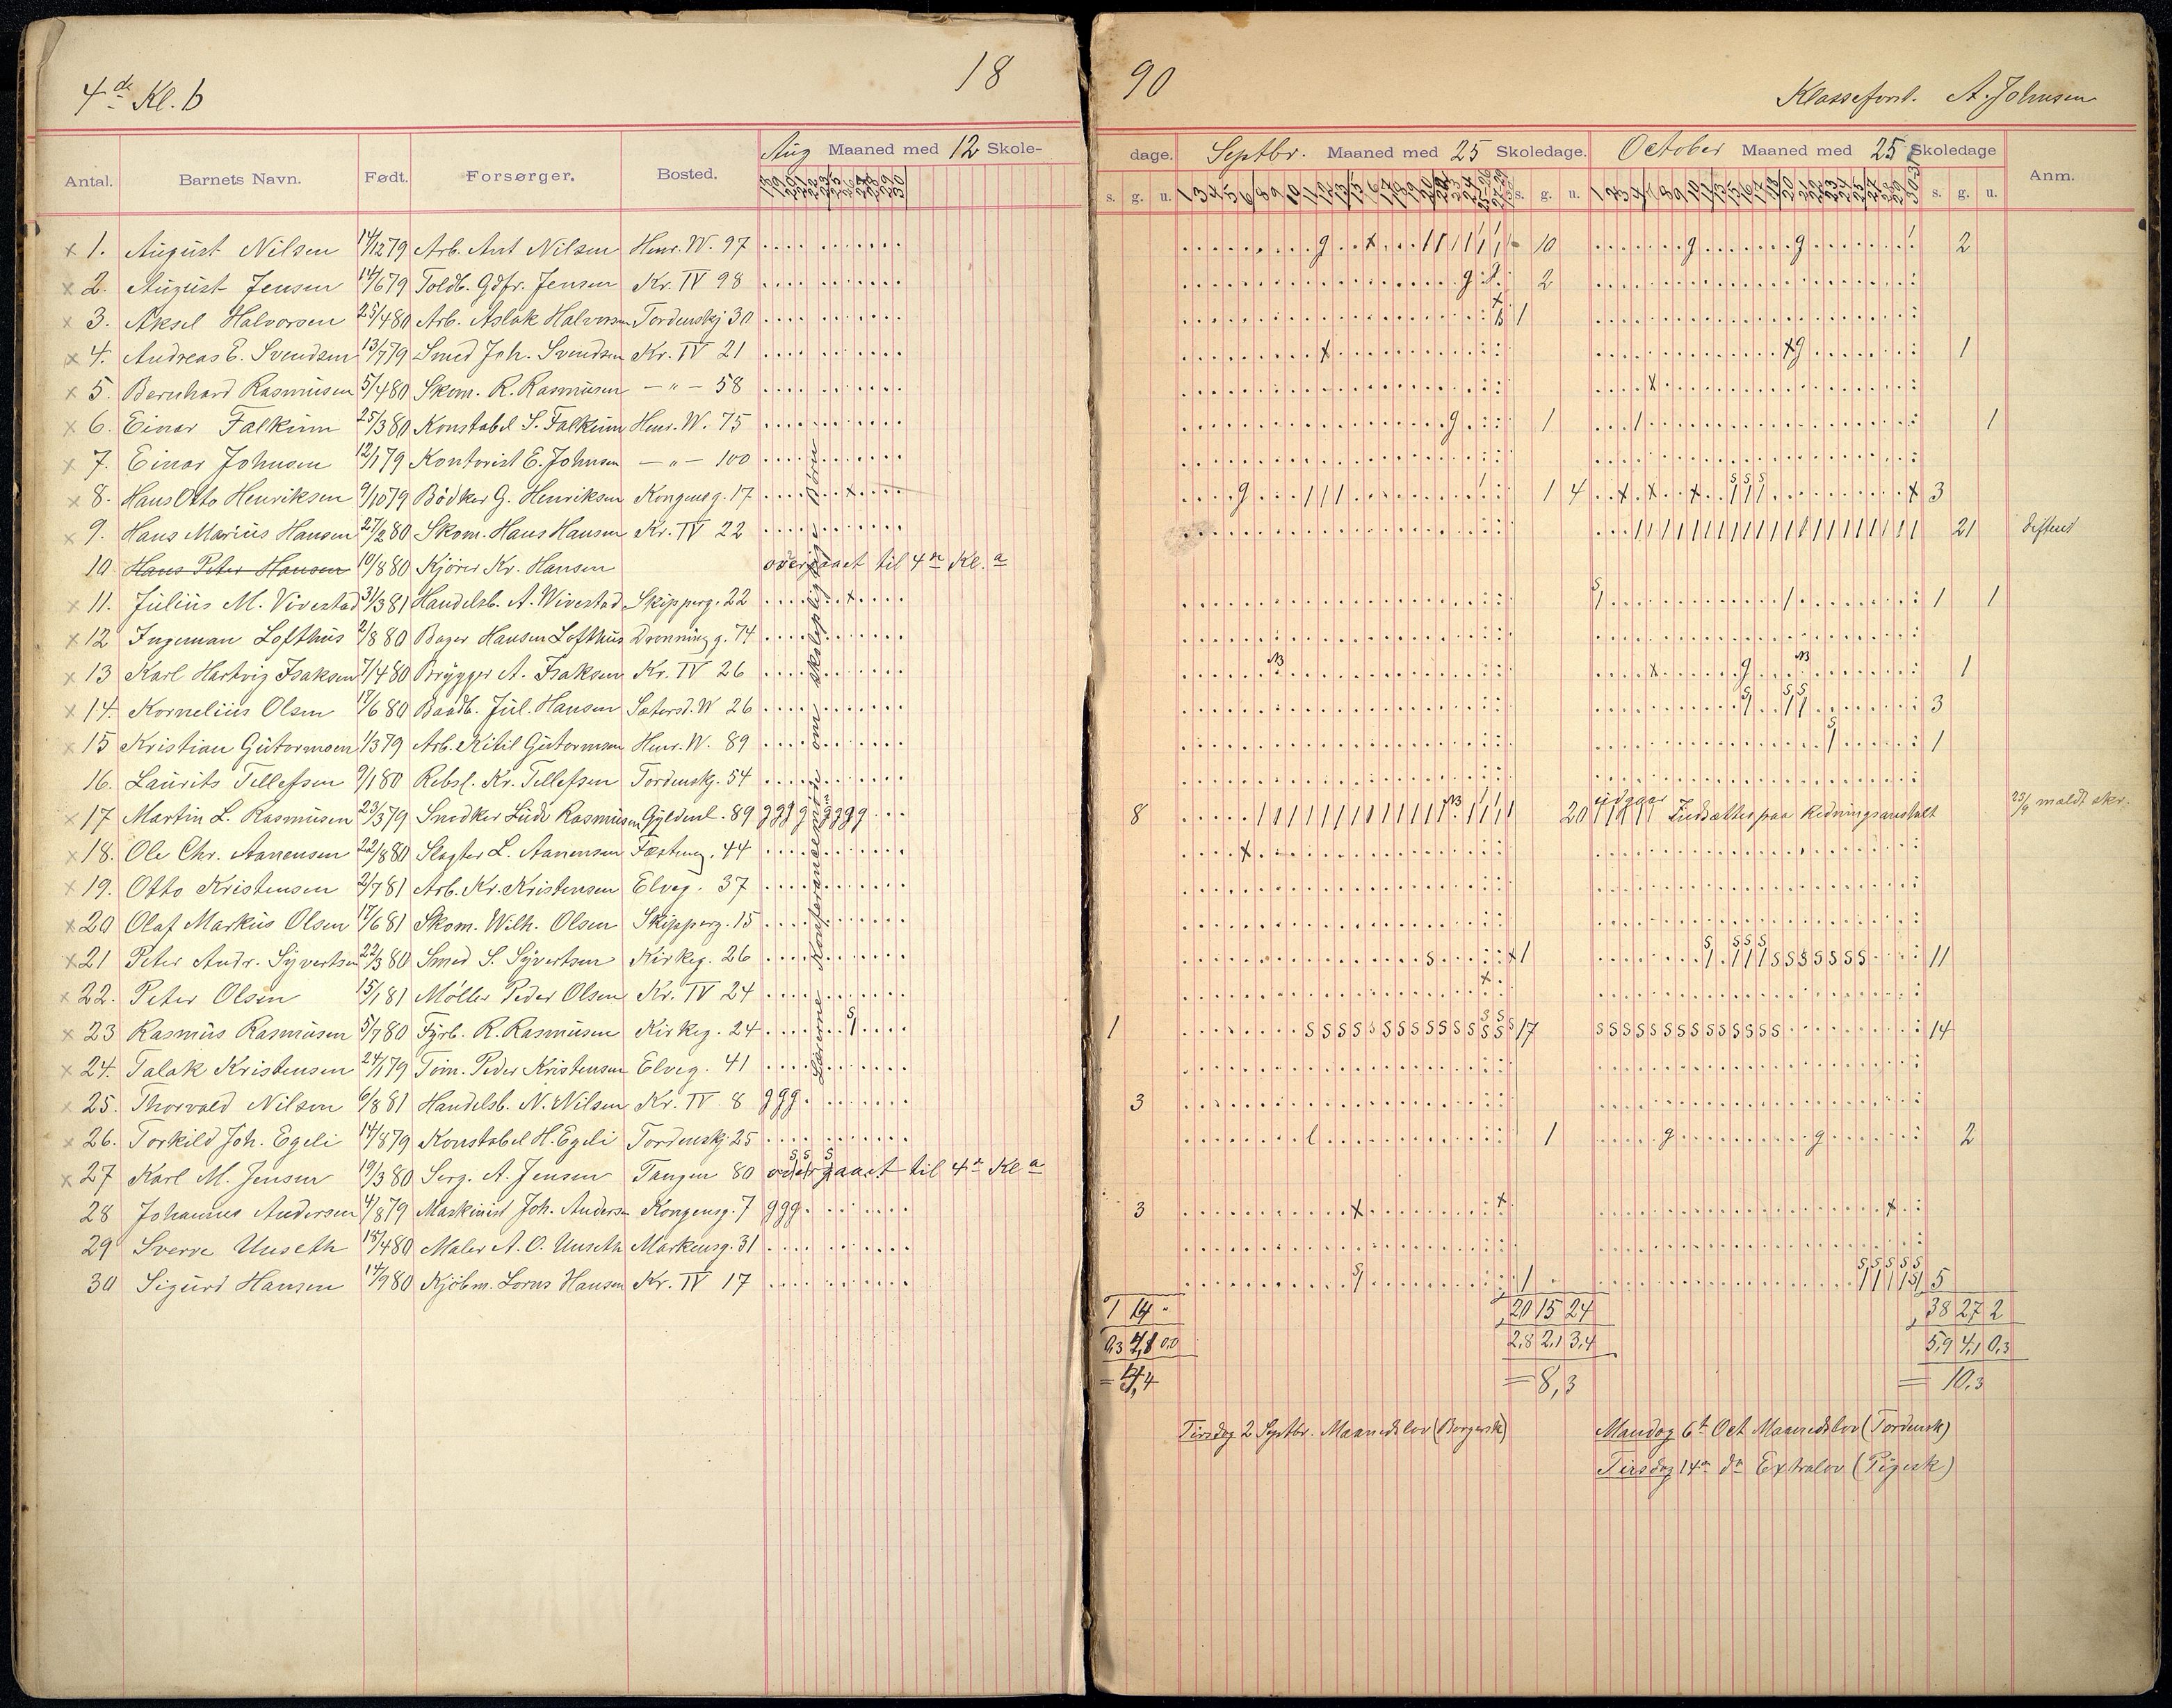 4de Kl. b
18
90
Klasseforst. A. Johnsen
Antal. Barnets Navn. Født. Forsørger. Bosted. Aug Maaned med 12 Skole-
dage. Septbr. Maaned med 25 Skoledage. October Maaned med 25 Skoledage Anm.
s. g. u. s. g. u. s. g. u.
x 1. August Nilsen 14/12 79 Arb. Ant Nilsen Henr. W. 97 10 2
x 2. August Jensen 14/6 79 Toldb. Gdfr. Jensen Kr. IV 98 2
x 3. Aksel Halvorsen 25/4 80 Arb. Aslak Halvorsen Tordenskj 30 1
x 4. Andreas E. Svendsen 13/7 79 Smed Joh. Svendsen Kr. IV 21 1
x 5. Bernhard Rasmusen 5/4 80 Skom. R. Rasmusen — " — 58
x 6. Einar Falkum 25/3 80 Konstabel S. Falkum Henr. W. 75 1 1
x 7. Einar Johnsen 12/1 79 Kontorist E. Johnsen — " — 100
x 8. Hans Otto Henriksen 9/10 79 Bödker G. Henriksen Kongensg. 17 1 4 3
x 9. Hans Marius Hansen 27/2 80 Skom. Hans Hansen Kr. IV 22 21
10 Hans Peter Hansen 10/8 80 Kjörer Kr. Hansen overgaaet til 4de Kl. a
x 11. Julius M. Vivestad 31/3 81 Handelsb. A. Wivestad Skipperg. 22 1 1
x 12 Ingeman Lofthus 2/8 80 Bager Hansen Lofthus Dronningg. 74
x 13 Karl Hartvig Isaksen 7/4 80 Brygger A. Isaksen Kr. IV 26 1
x 14. Kornelius Olsen 17/6 80 Baadb. Jul. Hansen Sætersd. W 26 3
x 15 Kristian Gutormsen 1/3 79 Arb. Kitil Gutormsen Henr. W. 89 1
16. Laurits Tellefsen 9/1 80 Rebsl. Kr. Tellefsen Tordenskj. 54
x 17 Martin L. Rasmusen 23/3 79 Snedker Ludv Rasmusen Gyldenl. 89 g g g g g g g g 8 20 udgaar Indsættes paa Redningsanstalt 23/9 meldt skr.
x 18. Ole Chr. Aanensen 22/8 80 Slagter L. Aanensen Fæstning. 44
x 19. Otto Kristensen 2/7 81 Arb. Kr. Kristensen Elveg. 37
x 20 Olaf Markus Olsen 17/6 81 Skom. Wilh. Olsen Skipperg. 15
x 21 Peter Andr. Syvertsen 22/3 80 Smed S. Syvertsen Kirkeg. 26 1 11
x 22. Peter Olsen 15/1 81 Møller Peder Olsen Kr. IV 24
x 23 Rasmus Rasmusen 5/7 80 Fyrb. R. Rasmusen Kirkeg. 24 1 17 14
x 24. Talak Kristensen 24/1 79 Töm. Peder Kristensen Elveg. 41
x 25. Thorvald Nilsen 6/8 81 Handelsb. N. Nilsen Kr. IV 8 g g g 3
x 26. Torkild Joh. Egeli 14/8 79 Konstabel H. Egeli Tordenskj. 25 1 2
x 27 Karl M. Jensen 19/3 80 Serg. A. Jensen Tangen 80 overgaaet til 4de Kl a
28 Johannes Andersen 4/8 79 Maskinist Joh. Anders. Kongensg. 7 g g g 3
29 Sverre Unseth 15/4 80 Maler A. O. Unseth Markensg. 31
30 Sigurd Hansen 14/9 80 Kjöbm. Lorns Hansen Kr. IV 17 1 5
Lærerne Konferancemøde om skolepligtige Børn
1 14 . 20 15 24 38 27 2
0,3 4,1 0,0 2,8 2,1 3,4 5,9 4,1 0,3
= 4,4 = 8,3 = 10,3
Tirsdag 2 Septbr. Maanedslov (Borgersk)
Mandag 6te Oct Maanedslov (Tordensk)
Tirsdag 14de do Extralov (Pigesk)